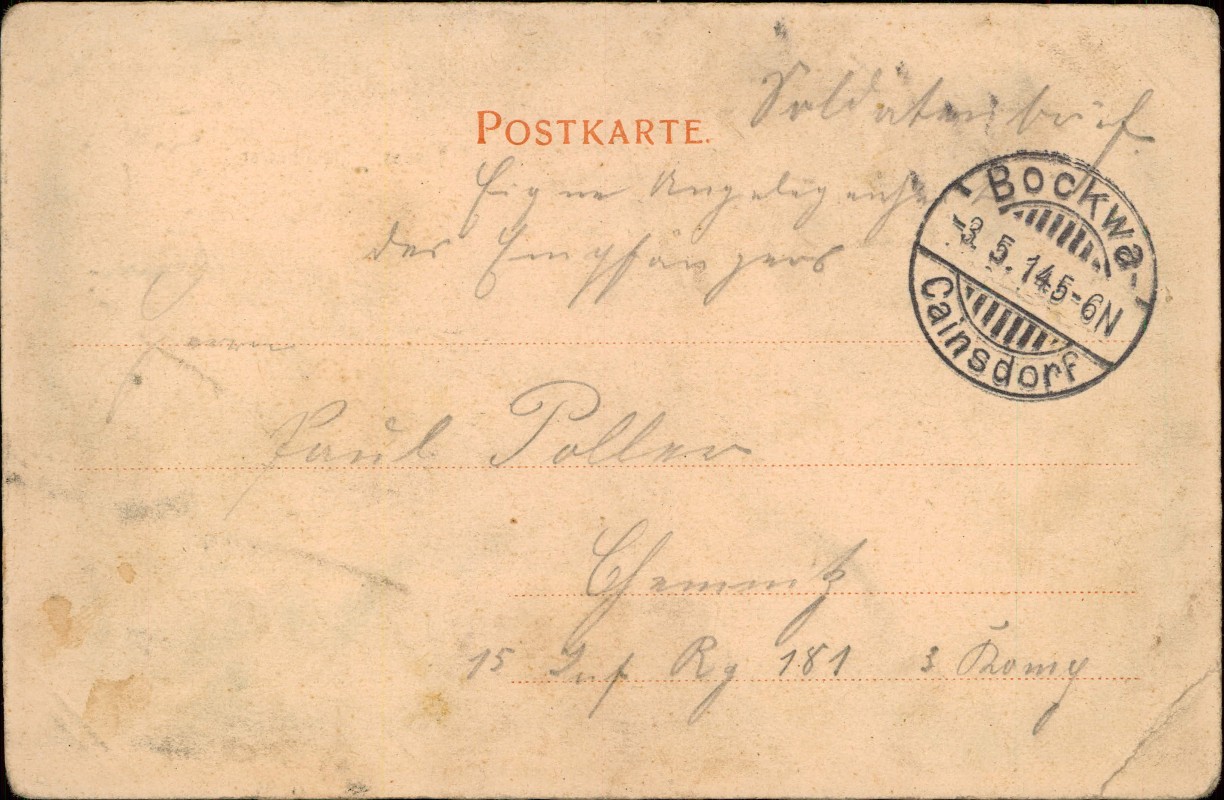 Soldatenbrief
POSTKARTE.
Eigne Angelegenheit
des Empfängers
Bockwa-
-3. 5. 14 5-6N
Cainsdorf
Herrn
Paul Poller
Chemnitz
15 Inf Rg 181 3 Komp